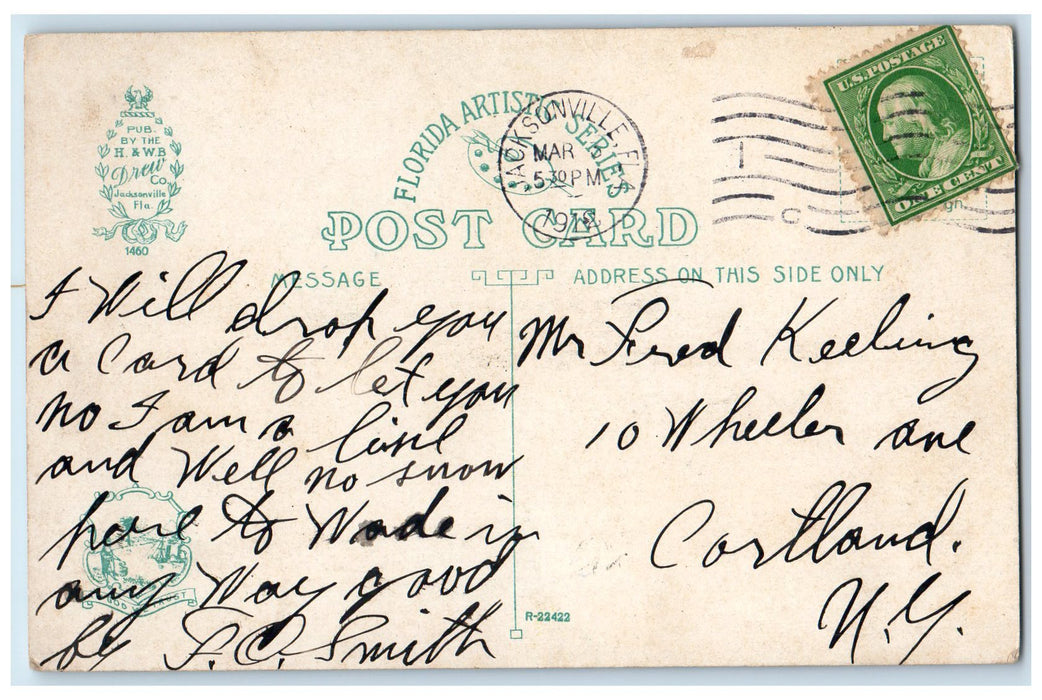 PUB.
BY THE
H. & W.B
Drew
Co.
Jacksonville
Fla.
1460
FLORIDA ARTISTIC SERIES
JACKSONVILLE, FLA
MAR
5 30 PM
191
U.S. POSTAGE
ONE CENT
POST CARD
MESSAGE
ADDRESS ON THIS SIDE ONLY
I Will drop you
a Card to let you
no I am a live
and Well no snow
hare to Wade in
any Way good
by F. C. Smith
Mr Fred Keeling
10 Wheeler ave
Cortland.
N.Y.
R-22422